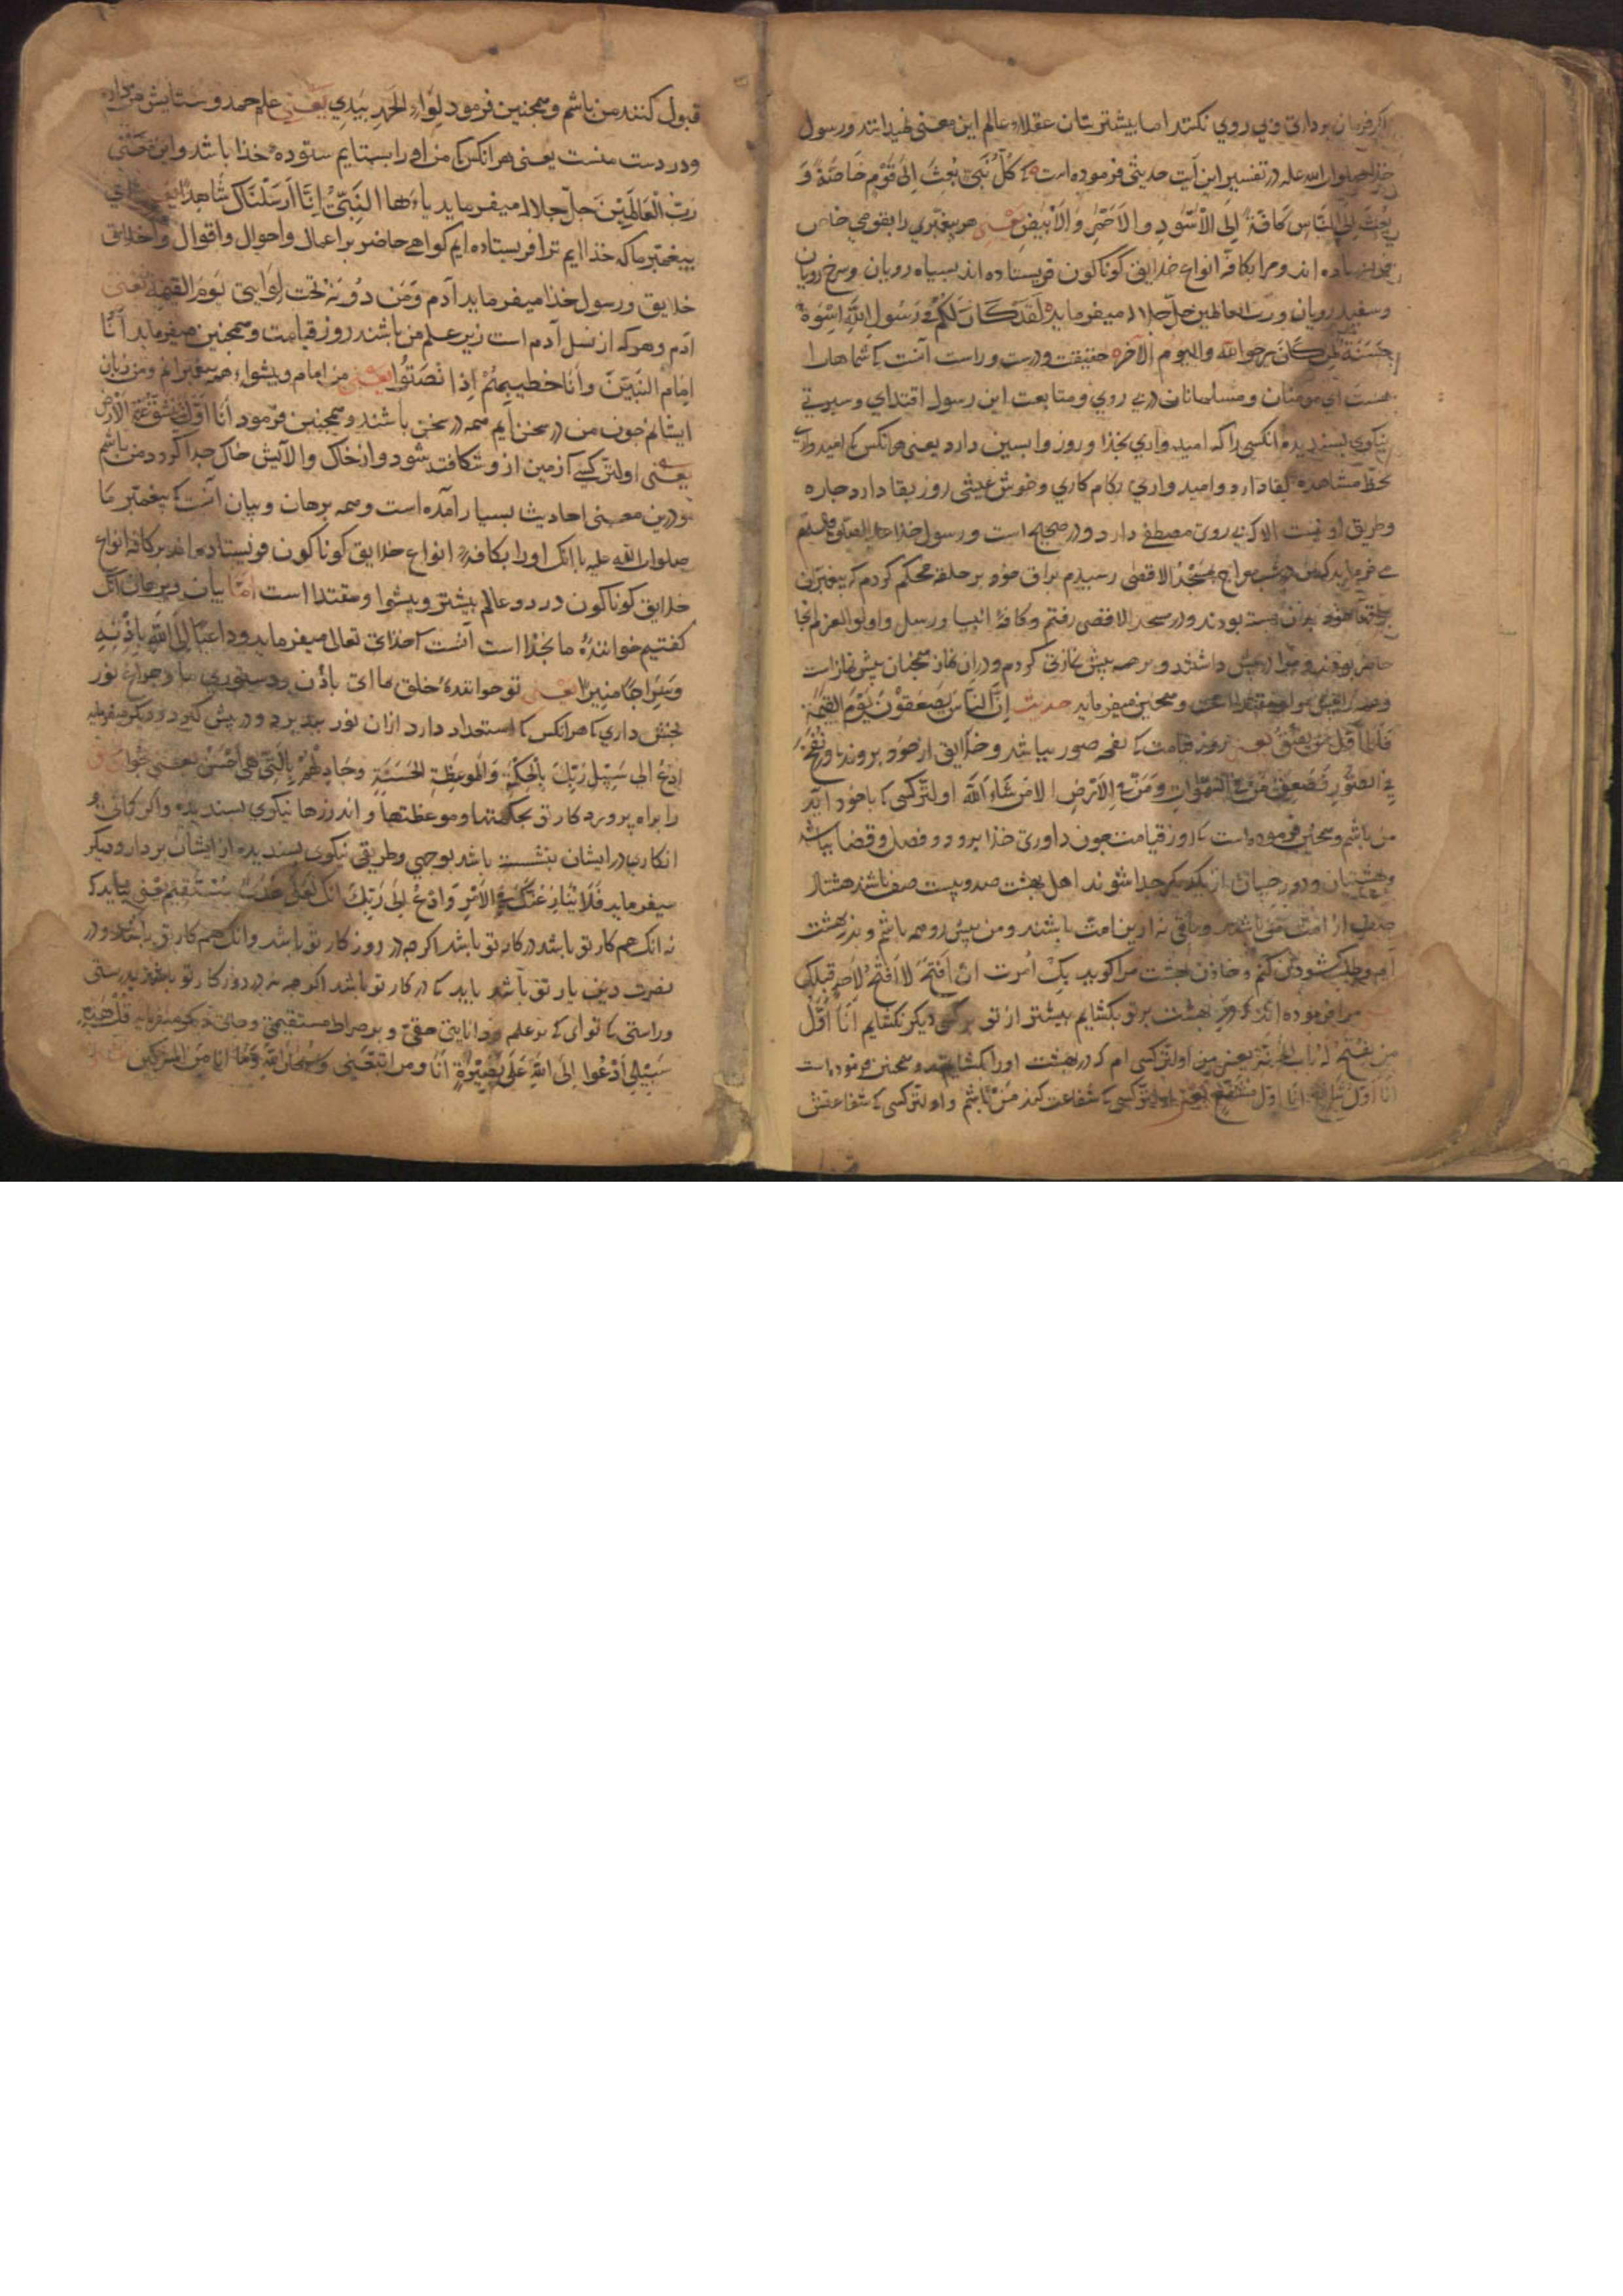 اکرفرمان برداری وپی روی نکنند اما بیشترینان عقلاء عالم این معنی نمیدانند ورسول
خذا صلوات الله علیه در تفسیر این آیت حدیثی فرموده است که کُلُّ نَبِیٍّ بُعِثَ اِلیٰ قَوْمٍ خَاصَّةً وَ
بُعِثْتُ اِلَی النَّاسِ کَافَّةً اِلَی الْاَسْوَدِ والاَحْمَرِ وَالْاَبْیَضِ یعنی هر پیغمبری را بقومی خاص
فرستاده اند ومرا بکافهٔ انواع خلایق کوناکون فریستاده اند بسیاه رویان وسرخ رویان
وسفید رویان وربّ العالمین جلّ جلاله میفرماید لَقَدْ کَانَ لَکُمْ فِی رَسُولِ اللهِ اُسْوَةٌ
حَسَنَةٌ لِمَنْ کَانَ یرجوالله والیوم الآخر حقیقت ودرست وراست آنست که شماها را
هست ای مومنان ومسلمانان در پی روی ومتابعت این رسول اقتدای وسیرتی
نیکوی پسندیده انکسی را که امیدواری بخذا وروز واپسین دارد یعنی هرانکس که امیدواری
بحظّ مشاهده لقا دارد وامیدواری بکام کاری وخوش عیشی روز بقا دارد چاره
وطریق او نیست الا که پی روی مصطفی دارد ودر صحیح است ورسول خذا علیه الصلوة والسلم
می فرماید که من در شب معراج بمسجد الاقصی رسیدم براق خود بر حلقه محکم کردم که پیغمبران
خود بدان بسته بودند ودر مسجد الاقصی رفتم وکافهٔ انبیا ورسل واولو العزم انجا
حاضر بودند ومرا در پیش داشتند وبر همه پیش نمازی کردم ودران نماز همچنان پیش نماز است
ومیفرماید حدیث اِنَّ النَّاسَ یَصْعَقُوْنَ یَوْمَ القِیٰمَةِ
یعنی روز قیامت که نفحه صور بباشد وخلایق از خود بروند ونُفِخَ
فِی الصُّورِ فَصَعِقَ مَنْ فِی السَّمٰوَاتِ وَمَنْ فِی الْاَرْضِ الامَن شَاءَ اللهُ اولترکسی که باخود آید
من باشم وهمچنین فرموده است که روز قیامت چون داوری خذا برود وفصل وقضا بباشد
وبهشتیان ودوزخیان از یکدیکر جدا شوند اهل بهشت صد وبیست صف باشند هشتاد
صف از امت من باشند وباقی نه ازین امت باشند ومن پیش رو همه باشم وبدر بهشت
آیم وطلب کشودن کنم وخازن بهشت مرا کوید بِکَ اُمِرت ان اَفْتَحَ لااَفْتَحُ لِاَحَدٍ قَبْلَکَ
مرا فرموده اند که در بهشت بر تو بکشایم بیشتر از تو بر کسی دیکر نکشایم اَنَا اَوَّلُ
مَنْ یُفْتَحُ لَهُ بَابُ الجَنَّةِ یعنی من اولترکسی ام که در بهشت اورا بکشایند وهمچنین فرموده است
اَنَا اَوَّلُ شَافِعٍ اَنَا اوّل مُشَفَّعٍ یعنی اولترکسی که شفاعت کند من باشم واولترکسی که شفاعتش
قبول کنند من باشم وهمچنین فرمود لِوَاءُ الحَمْدِ بِیَدِی یَعْنی علم حمد وستایش
ودر دست منست یعنی هرانکس که من اورا بستایم ستوده خذا باشد واین معنی
ربّ الْعَالَمِیْنَ جلّ جلاله میفرماید یااَیُّهَا النَّبِیُّ اِنَّا اَرْسَلْنَاکَ شَاهِداً یعنی ای
پیغمبر ما که خذاایم ترا فریستاده ایم کواهی حاضر بر اعمال واحوال واقوال واخلاق
خلایق ورسول خذا میفرماید آدم وَمَن دُوْنَهُ تحت لِوَایی یَومَ القیٰمَةِ یعنی
آدم وهرکه از نسل آدم است زیر علم من باشند روز قیامت وهمچنین میفرماید اَنَا
اِمَامُ النَّبِیِّنَ وأَنَا خطیبهُمْ اِذَا نْصَتُوا یعنی من امام وپیشواء همه پیغمبرانم ومن زبان
ایشانم چون من در سخن آیم همه در سخن باشند وهمچنین فرمود اَنَا اَوّلُ مَنْ تَنْشَقُّ عَنْهُ الْاَرْضُ
یعنی اولترکسی که زمین ازو شکافته شود واز خاک والآیش خاک جدا کردد من باشم
ودرین معنی احادیث بسیار آمده است وهمه برهان وبیان آنست که پیغمبر ما
صلوات الله علیه باانک اورا بکافهٔ انواع خلایق کوناکون فریستاده اند بر کافه انواع
خلایق کوناکون در دو عالم پیشتر وپیشوا ومقتدا است امّا بیان وبرهان آنک
کفتیم خوانندهٔ ما بخذا است آنست که خذای تعالی میفرماید وداعیًا اِلَی اللهِ بِاِذْنِهِ
وسِرَاجًا مُنیِرًا یعنی تو خوانندهٔ خلق بماای باذن ودستوری ما وچراغ نور
بخش داری که هرانکس که استعداد دارد ازان نور بپذیرد ودر پیش کیرد ودیکر میفرماید
اُدْعُ الی سَبِیْلِ رَبِّکَ بِالْحِکْمَةِ وَالْمَوعِظَةِ الْحَسَنَةِ وَجَادِلْهُمْ بِالَّتِی هِیَ اَحْسَنُ یعنی خوان خلق
را براه پروردکار تو بحکمتها وموعظتها واندرزها نیکوی پسندیده واکر کمانی و
انکاری در ایشان بنشست باشد بوجهی وطریقی نیکوی پسندیده از ایشان بردار ودیکر
میفرماید فَلَا یُنَازِعُنَّکَ فِی الْاَمْرِ وَادْعُ اِلیٰ رَبِّکَ اِنَّکَ لَعَلیٰ هُدًی مُسْتَقِیْمٍ یعنی نباید که
نه انک هم کار تو باشد در کار تو باشد اکرچه در روز کار تو باشد وانک هم کار تو باشد ودر
نصرت دین یار تو باشد باید که در کار تو باشد اکرچه نه در روز کار تو باشد بدرستی
وراستی که توای که بر علم ودانایی حقی وبر صراط مستقیمی وجای دیکر میفرماید قُلْ هٰذِهِ
سَبِیْلِی اَدْعُوا اِلیَ اللهِ عَلیٰ بَصِیْرَةٍ اَنَا ومن اتَّبَعَنِی وَسُبْحَانَ اللهِ وَمَا اَنَا مِنَ المُشرکین